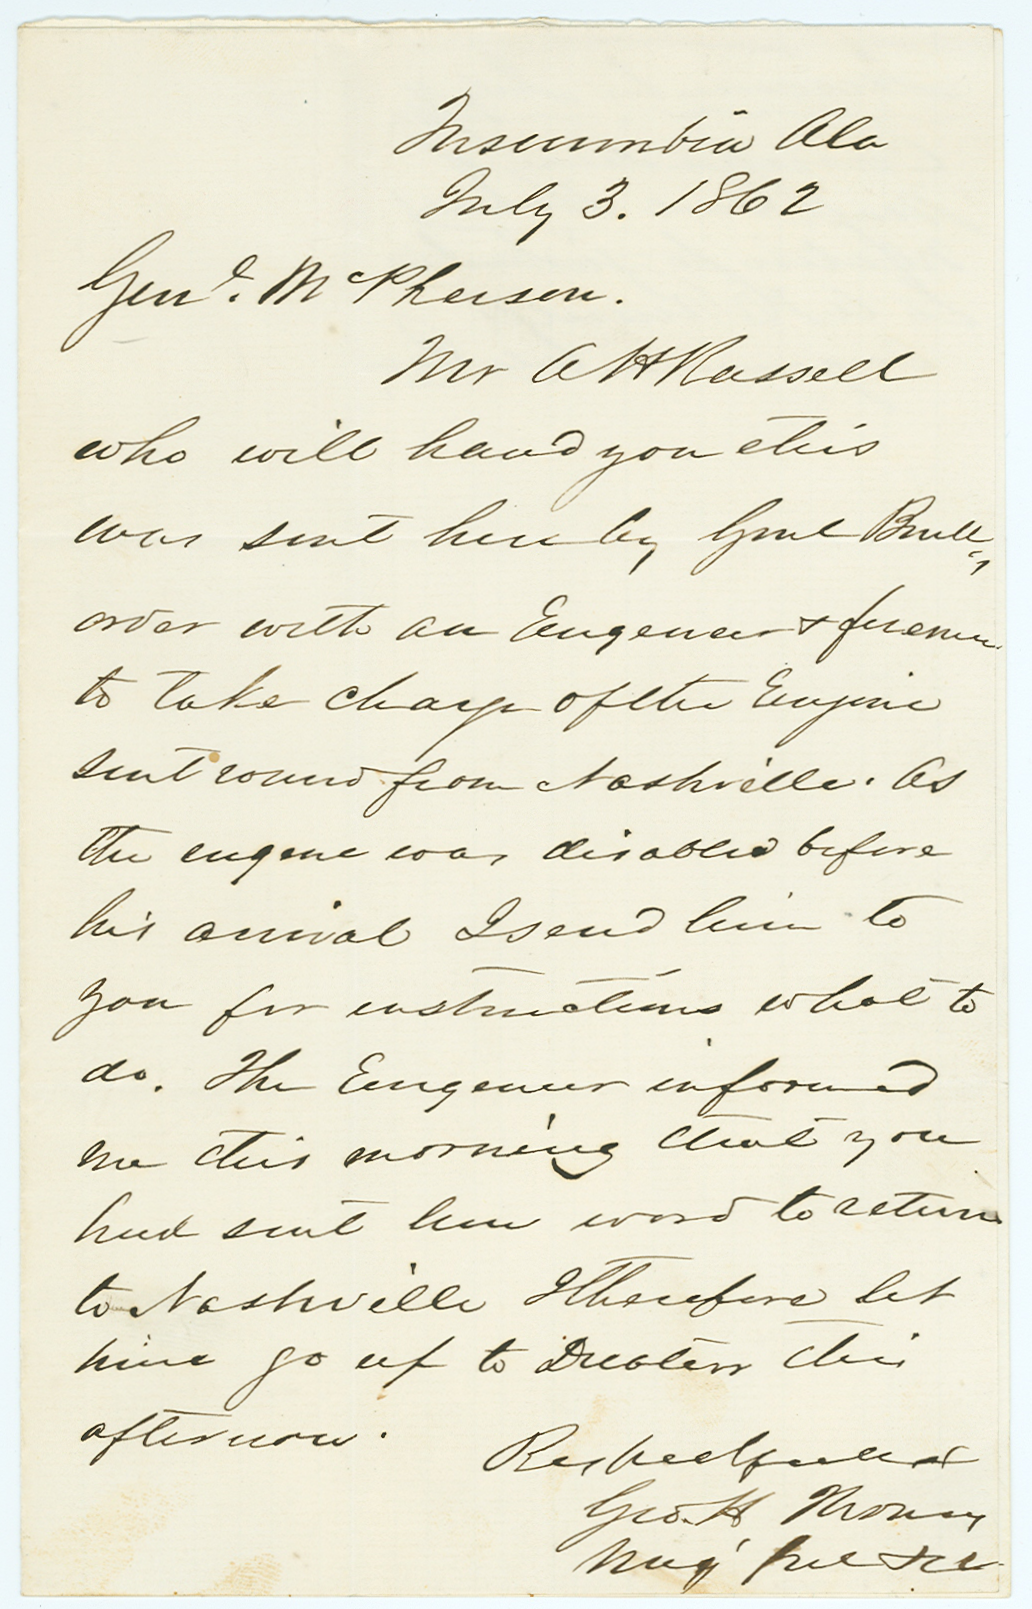 Tuscumbia Ala
July 3. 1862
Genl. McPherson.
Mr A H Russell
who will hand you this
was sent here by Genl Buell,s
order with an Engeneer & fireman
to take charge of the Engine
sent round from Nashville. As
the engene was disabled before
his arrival I send him to
you for instructions what to
do. The Engeneer informed
me this morning that you
had sent him word to return
to Nashville I Therefore let
him go up to Decatur this
afternoon.
Respectfully
Geo. H Thomas
Maj Genl